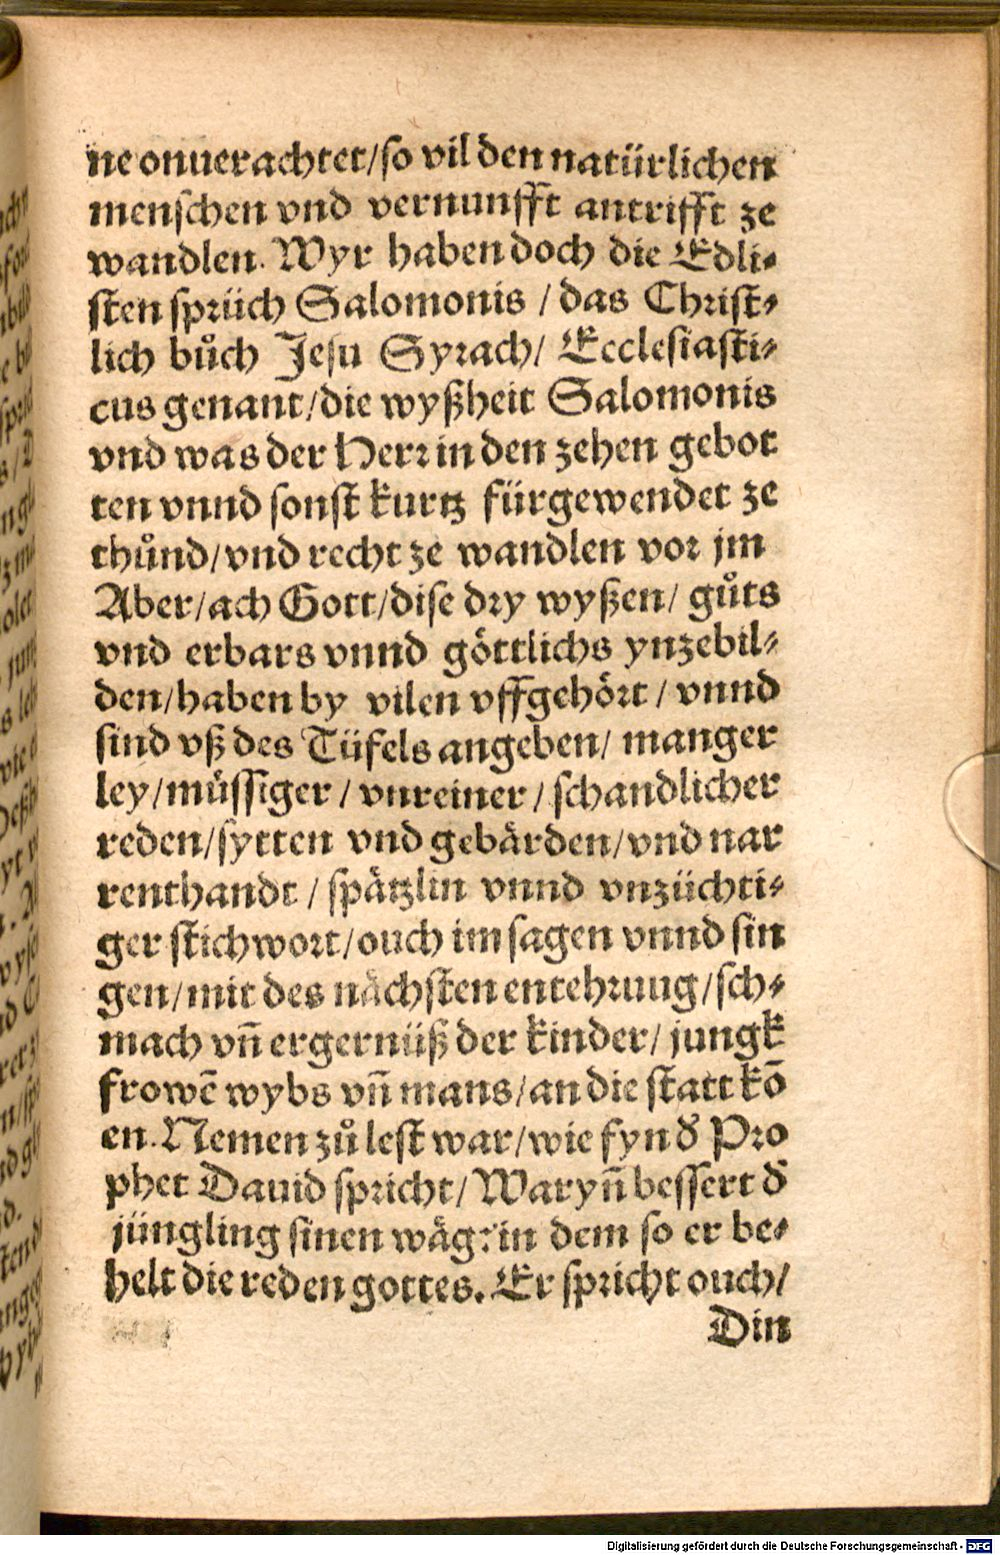 ne onuerachtet/so vil den natürlichen
menschen vnd vernunfft antrifft ze
wandlen. Wyr haben doch die Edli⸗
sten sprüch Salomonis / das Christ⸗
lich bůch Jesu Syrach/ Ecclesiasti⸗
cus genant/die wyßheit Salomonis
vnd was der Herr in den zehen gebot
ten vnnd sonst kurtz fürgewendet ze
thůnd/vnd recht ze wandlen vor jm
Aber/ach Gott/dise dry wyßen/ gůts
vnd erbars vnnd göttlichs ynzebil⸗
den/haben by vilen vffgehört / vnnd
sind vß des Tüfels angeben/ manger
ley/müssiger / vnreiner / schandlicher
reden/sytten vnd gebärden/vnd nar
renthandt / spätzlin vnnd vnzüchti⸗
ger stichwort/ouch im sagen vnnd sin
gen/mit des nächsten entehrung/sch⸗
mach vn̄ ergernüß der kinder/ jungk
frowē wybs vn̄ mans/an die statt kō
en. Nemen zů lest war/wie fyn d̕ Pro
phet Dauid spricht/Waryn̄ bessert d̕
jüngling sinen wäg? in dem so er be⸗
helt die reden gottes. Er spricht ouch/
Din
Digitalisierung gefördert durch die Deutsche Forschungsgemeinschaft - DFG